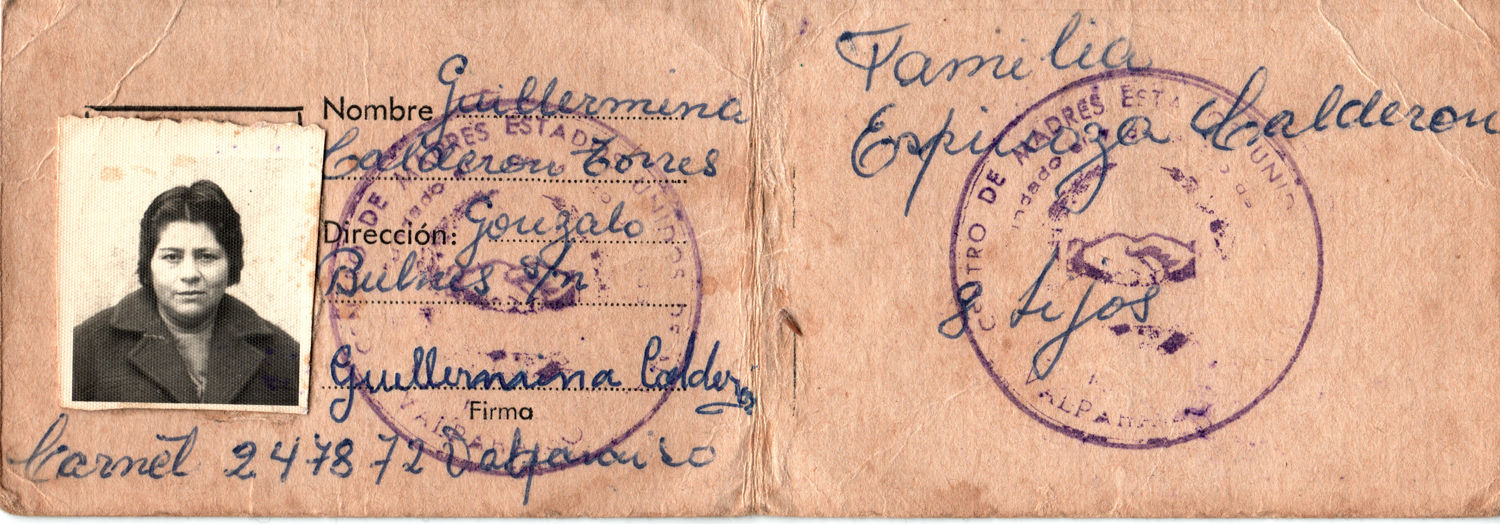 Nombre Guillermina
Calderon Torres
Dirección: Gonzalo
Bulnes s/n
Guillermina Calderon
Firma
Carnet 247872 Valparaiso
CENTRO DE MADRES ESTADOS UNIDOS DE
VALPARAISO
Familia
Espinoza Calderon
8 hijos
CENTRO DE MADRES ESTADOS UNIDOS
Fundado
VALPARAISO